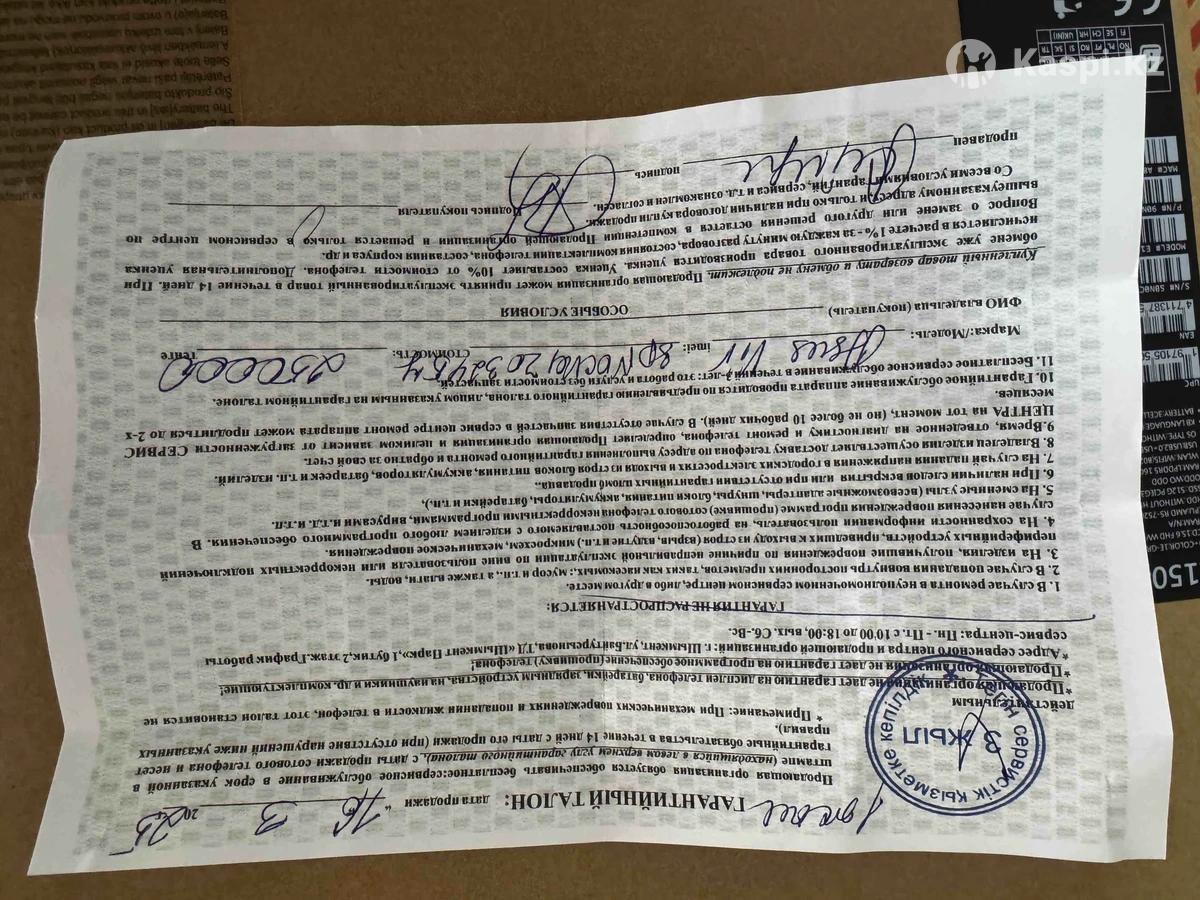 Kaspi.kz
ГАРАНТИЙНЫЙ ТАЛОН: дата продажи " 16 3 2025
Продающая организация обязуется обеспечивать бесплатное:сервисное обслуживание в срок указанной в
штампе (находящийся в левом верхнем углу гарантийного талона), с даты продажи сотового телефона и несет
гарантийные обязательства в течение 14 дней с даты его продажи (при отсутствие нарушений ниже указанных
правил).
* Примечание: При механических повреждениях и попадании жидкости в телефон, этот талон становится не
действительным
*Продающая организация не дает гарантию на дисплеи телефона, батарейки, зарядным устройства, на наушники и др. комплектующие!
*Продающая организация не дает гарантию на программное обеспечение(прошивку) телефона!
*Адрес сервисного центра и продающей организаций: г. Шымкент, ул.Байтурсынова, ТД «Шымкент Парк»,1 бутик,2 этаж.График работы
сервис-центра: Пн. - Пт. с 10:00 до 18:00, вых. Сб.-Вс.
ТЕГІН СЕРВИСТІК ҚЫЗМЕТКЕ КЕПІЛДІК
3 ЖЫЛ
ГАРАНТИЯ НЕ РАСПРОСТРАНЯЕТСЯ:
1. В случае ремонта в неуполномоченном сервисном центре, либо в другом месте.
2. В случае попадания вовнутрь посторонних предметов, таких как насекомых.: мусор и т.п., а также влаги, воды.
3. На изделия, получившие повреждение по причине неправильной эксплуатации по вине пользователя или некорректных подключений
периферийных устройств, приведших к выходу из строя (взрыв, вздутие и т.п.) микросхем, механическое повреждения.
4. На сохранности информации пользователь, на работоспособность поставляемого с изделием любого программного обеспечения. В
случае нанесения повреждения программе (прошивке) сотового телефона некорректными программами, вирусами и.т.д. и.т.п.
5. На сменные узлы (всевозможные адаптеры, шнуры, блоки питания, аккумуляторы, батарейки и т.п),
6. При наличии следов вскрытия или при отсутствии гарантийных пломб продавца..
7. На случай падания напряжения в городских электросетях и выхода из строя блоков питания, аккумуляторов, батареек и т.п. изделий.
8. Владелец изделия осуществляет доставку телефона по адресу выполнения гарантийного ремонта и обратно за свой счет.
9.Время, отведенное на диагностику и ремонт телефона, определяет Продающая организация и целиком зависит от загруженности СЕРВИС
ЦЕНТРА на тот момент, (но не более 10 рабочих дней). В случае отсутствия запчастей в сервис центре ремонт аппарата может продлиться до 2-х
месяцев.
10.Гарантийное обслуживание аппарата проводится по предъявлению гарантийного талона, лицом указанным на гарантийном талоне.
11. Бесплатное сервисное обслуживание в течений 3-лет: это работа и услуги без стоимости запчастей.
Марка:/Модель: imei: стоимость: 250000 тенге
ФИО владельца (покупатель)
ОСОБЫЕ УСЛОВИЯ
Купленный товар возврату и обмену не подлежит. Продающая организация может принять эксплуатированный товар в течение 14 дней. При
обмене уже эксплуатированного товара производится уценка. Уценка составляет 10% от стоимости телефона. Дополнительная уценка
исчисляется в расчете 1% - за каждую минуту разговора, состояния комплектации телефона, состояния корпуса и др.
Вопрос о замене или другого решения остается в компетенции Продающей организации и решается только в сервисном центре по
вышеуказанному адресу и только при наличии договора купли продажи.
Со всеми условиями гарантий, сервиса и т.д. ознакомлен и согласен. Подпись покупателя
продавец подпись